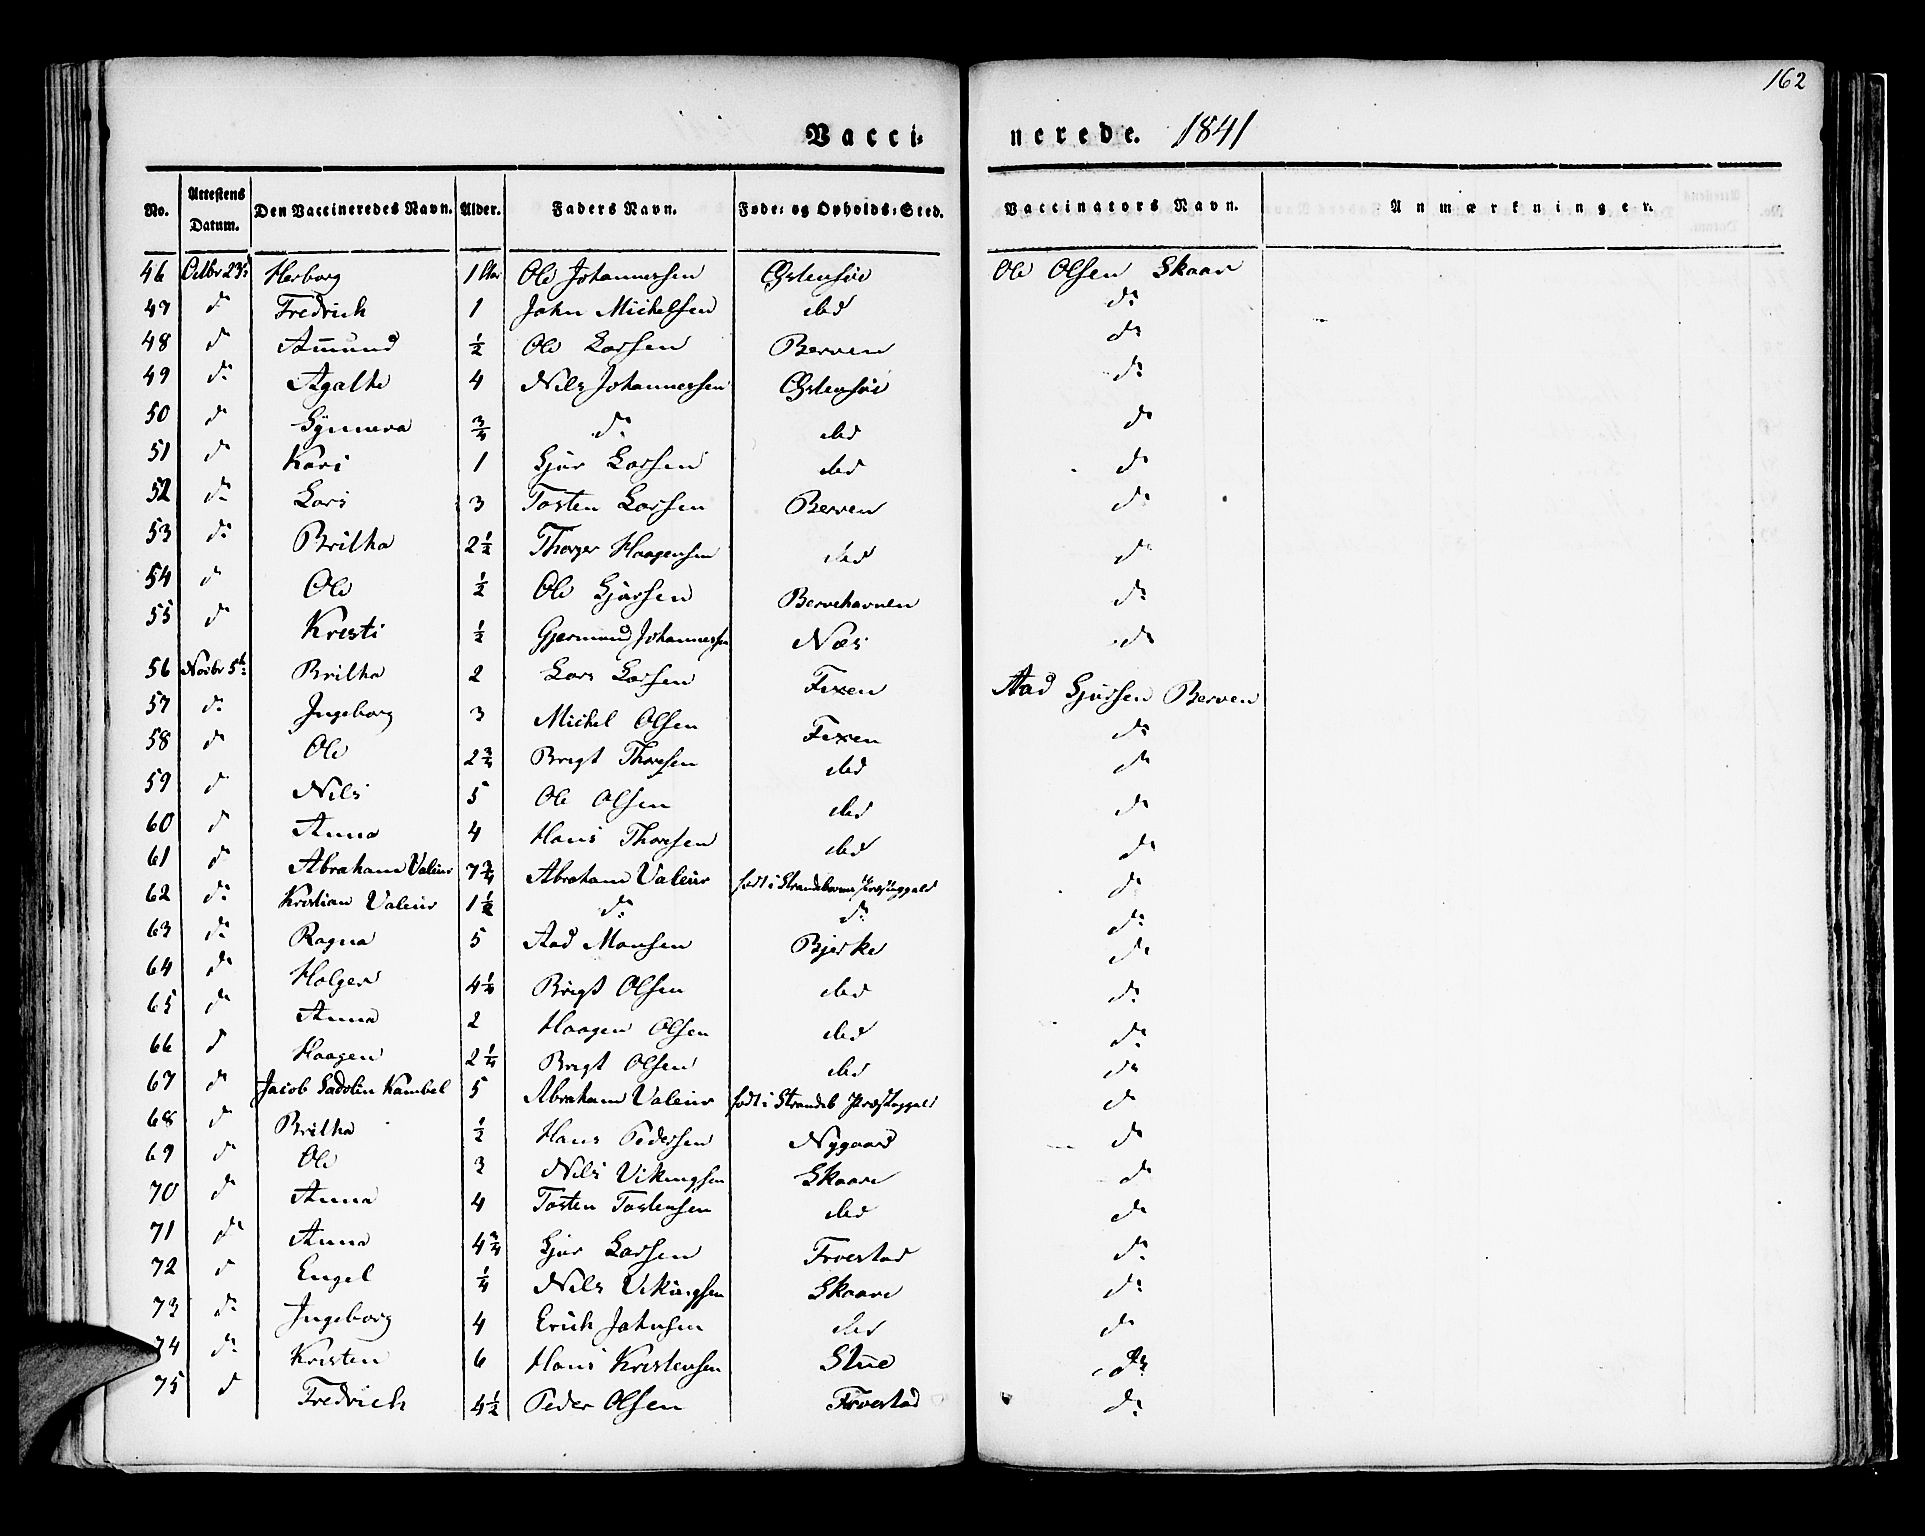 162
Vacci-nerede. 1841
No. Attestens Datum. Den Vaccineredes Navn. Alder. Faders Navn. Føde- og Opholds-Sted. Vaccinators Navn. Anmærkninger.
46 Octbr 23: Herborg 1 Aar Ole Johannessen Østensøe Ole Olsen Skaar
47 do Fredrich 1 John Michelsen ibid do
48 do Amund ½ Ole Larsen Berven do
49 do Agathe 4 Nils Johannessen Østensøe do
50 do Synneva ¾ do ibid do
51 do Kari 1 Sjur Larsen ibid do
52 do Lars 3 Tosten Larsen Berven do
53 do Britha 2½ Thorger Haagensen ibid do
54 do Ole ½ Ole Sjursen Bervehavnen do
55 do Kristi ½ Gjermund Johannessen Næs do
56 Novbr 5te Britha 2 Lars Larsen Fixen Aad Sjursen Berven
57 do Ingeborg 3 Michel Olsen Fixen do
58 do Ole 2¾ Brigt Thoresen ibid do
59 do Nils 5 Ole Olsen ibid do
60 do Anna 4 Hans Thoresen ibid do
61 do Abraham Valeur 7¾ Abraham Valeur født i Strandebarms Præstegjeld do
62 do Kristian Valeur 1½ do do do
63 do Ragna 5 Aad Monsen Bjerke do
64 do Holger 4¼ Brigt Olsen ibid do
65 do Anna 2 Haagen Olsen ibid do
66 do Haagen 2¼ Brigt Olsen ibid do
67 do Jacob Sadolin Kambel 5 Abraham Valeur født i Strandeb Præstegjeld do
68 do Britha ½ Hans Pedersen Nygaard do
69 do Ole 3 Nils Vikingsen Skaare do
70 do Anna 4 Tosten Tostensen ibid do
71 do Anna 4¾ Sjur Larsen Froestad do
72 do Engel ¼ Nils Vikingsen Skaare do
73 do Ingeborg 4 Erich Johnsen ibid do
74 do Kristen 6 Hans Kristensen Stue do
75 do Fredrich 4½ Peder Olsen Froestad do